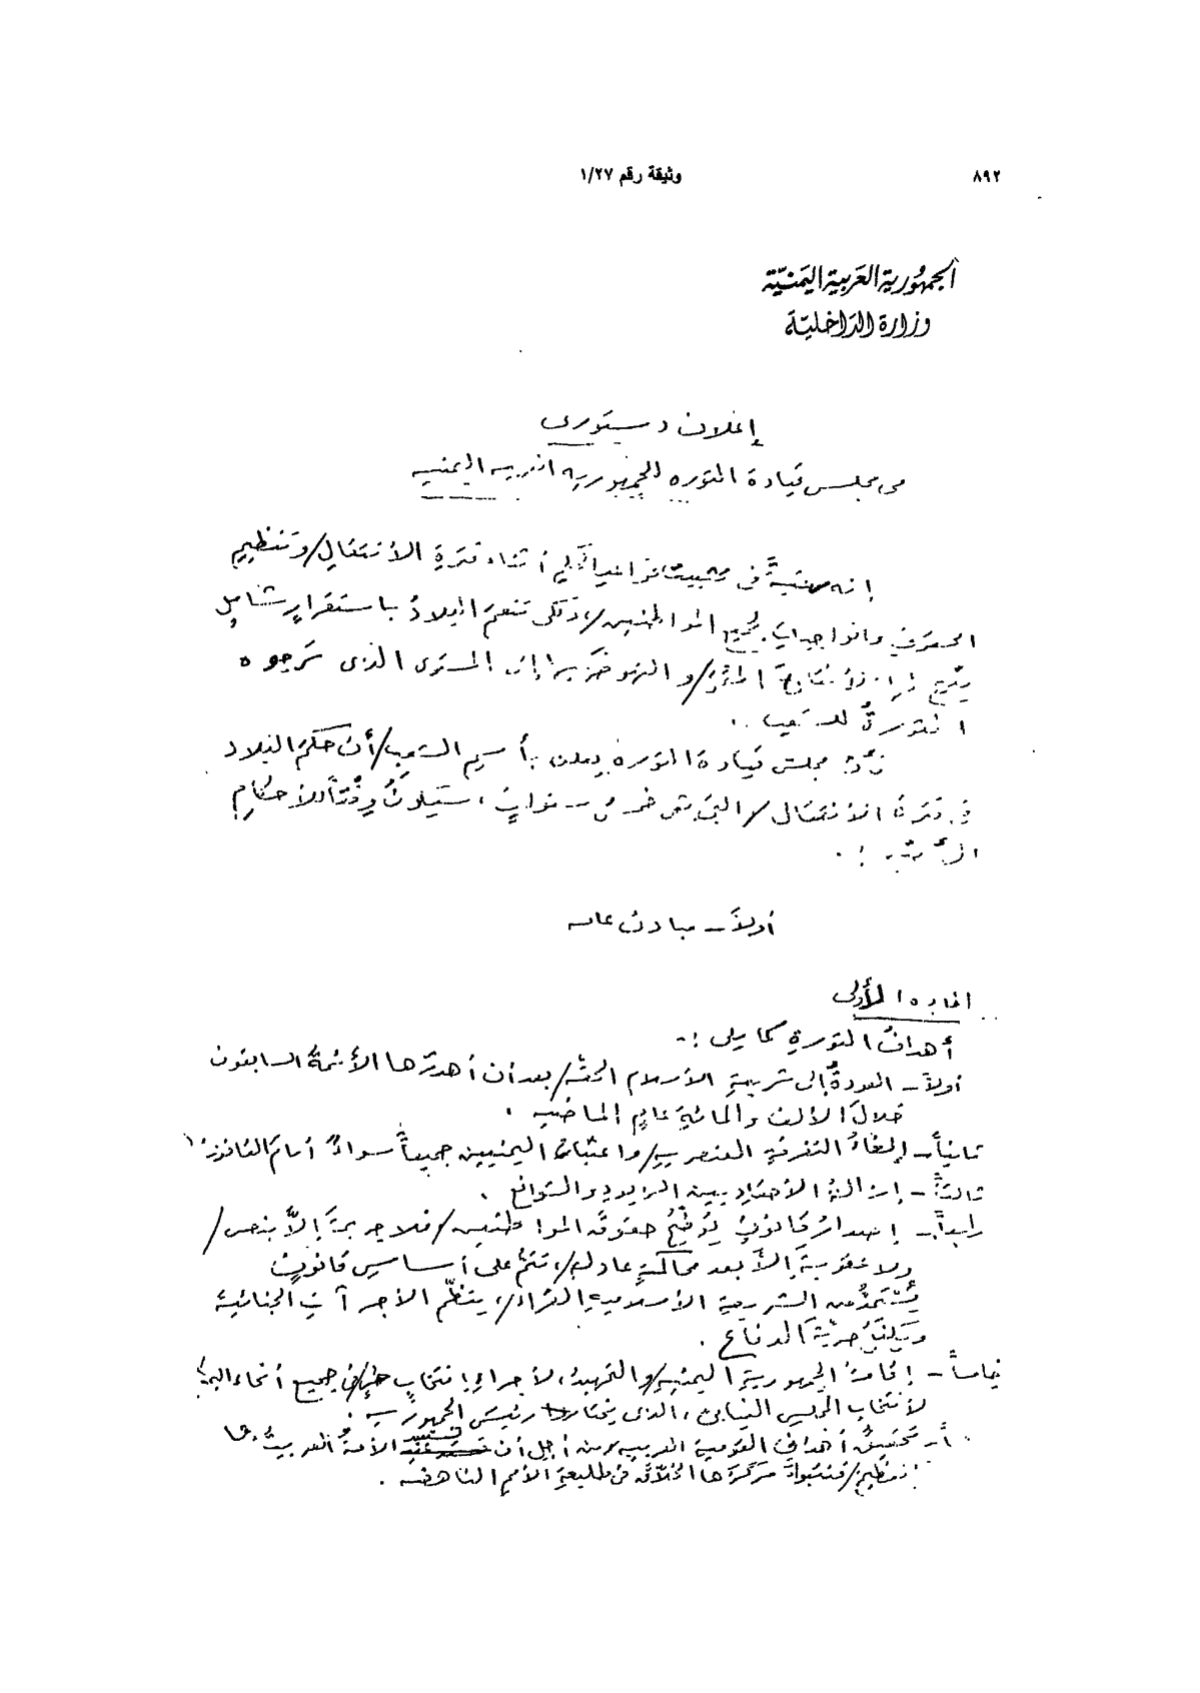 ٨٩٢
وثيقة رقم ١/٢٧
الجمهورية العربية اليمنية
وزارة الداخلية
إعلان دستوري
من مجلس قيادة الثوره للجمهوريه العربيه اليمنيه
إنه رغبةً في تثبيت قواعد الحكم أثناء فترةِ الأنتقالِ/وتنظيمِ
الحقوقِ والواجباتِ لجميع المواطنين/، ولكى تنعمَ البلادُ باستقرارٍ شاملٍ
يتيح لها الأنتاجَ المثمرَ/والنهوضَ بها إلى المستوى الذى ترجوه
الثورةُ للشعب ..
فإن مجلس قيادة الثورة يعلن بأسمِ الشعبِ/أن حكمَ البلاد
في فترة الأنتقال/التي خمس سنواتٍ، سيكونُ وفقاً للأحكامِ
الأتيه :.
أولاً – مبادئ عامه
الماده الأولى
أهدافُ الثورةِ كما يلى :-
أولاً – العودةُ إلى شريعةِ الأسلام الحقه/بعد أن أهدرَها الأئمةُ السابقون
خلالَ الألف والمائةِ عامٍ الماضيه .
ثانياً – إلغاءُ التفرقةِ العنصريةِ/واعتبارُ اليمنيين جميعاً سواءً أمامَ القانون
ثالثاً – إزالةُ الأحقادِ بين الزيودِ والشوافع .
رابعاً – إصدارُ قانونٍ يُوَضِّحُ حقوقَ المواطنين/فلا جريمةَ إلاَّ بنص/
ولا عقوبةَ إلاَّ بعد محاكمةٍ عادلةٍ/، تتمُ على أساسِ قانونٍ
يُسْتَمَدُّ من الشريعةِ الأسلاميةِ الغراء/، ينظّم الأجراآتِ الجنائية
ويكفلُ حريةَ الدفاع .
خامساً – إقامةُ الجمهوريةِ اليمنيةِ/والتمهيدُ لأجراءِ إنتخابٍ حرٍّ/في جميع أنحاء البلاد
لأنتخاب المجلس النيابى، الذى يختار رئيسَ الجمهوريه .
أ – تحقيقُ أهدافِ القوميةِ العربيه/من أجل أن تستعيد الأمةُ العربيةُ
فتتبوأ مركزَها الخلاّق في طليعةِ الأمم الناهضه .